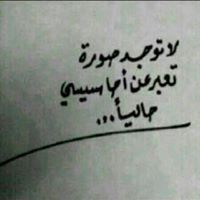 لا توجد صورة
تعبر عن أحاسيسي
حالياً...